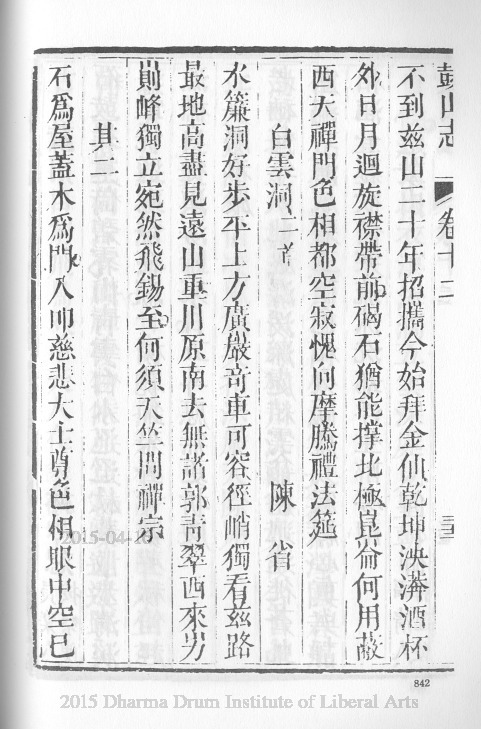 鼓山志 卷十二
不到茲山二十年招攜今始拜金仙乾坤泱漭酒杯
外日月迴旋襟帶前碣石猶能撐北極崑崙何用蔽
西天禪門色相都空寂愧向摩騰禮法筵
白雲洞二首 陳省
水簾洞好步平上方廣巖奇車可容徑峭獨看茲路
最地高盡見遠山重川原南去無諸郭青翠西來屴
崱峰獨立宛然飛錫至何須天竺問禪宗
其二
石爲屋蓋木爲門入叩慈悲大士尊色相眼中空已
2015-04-
842
2015 Dharma Drum Institute of Liberal Arts